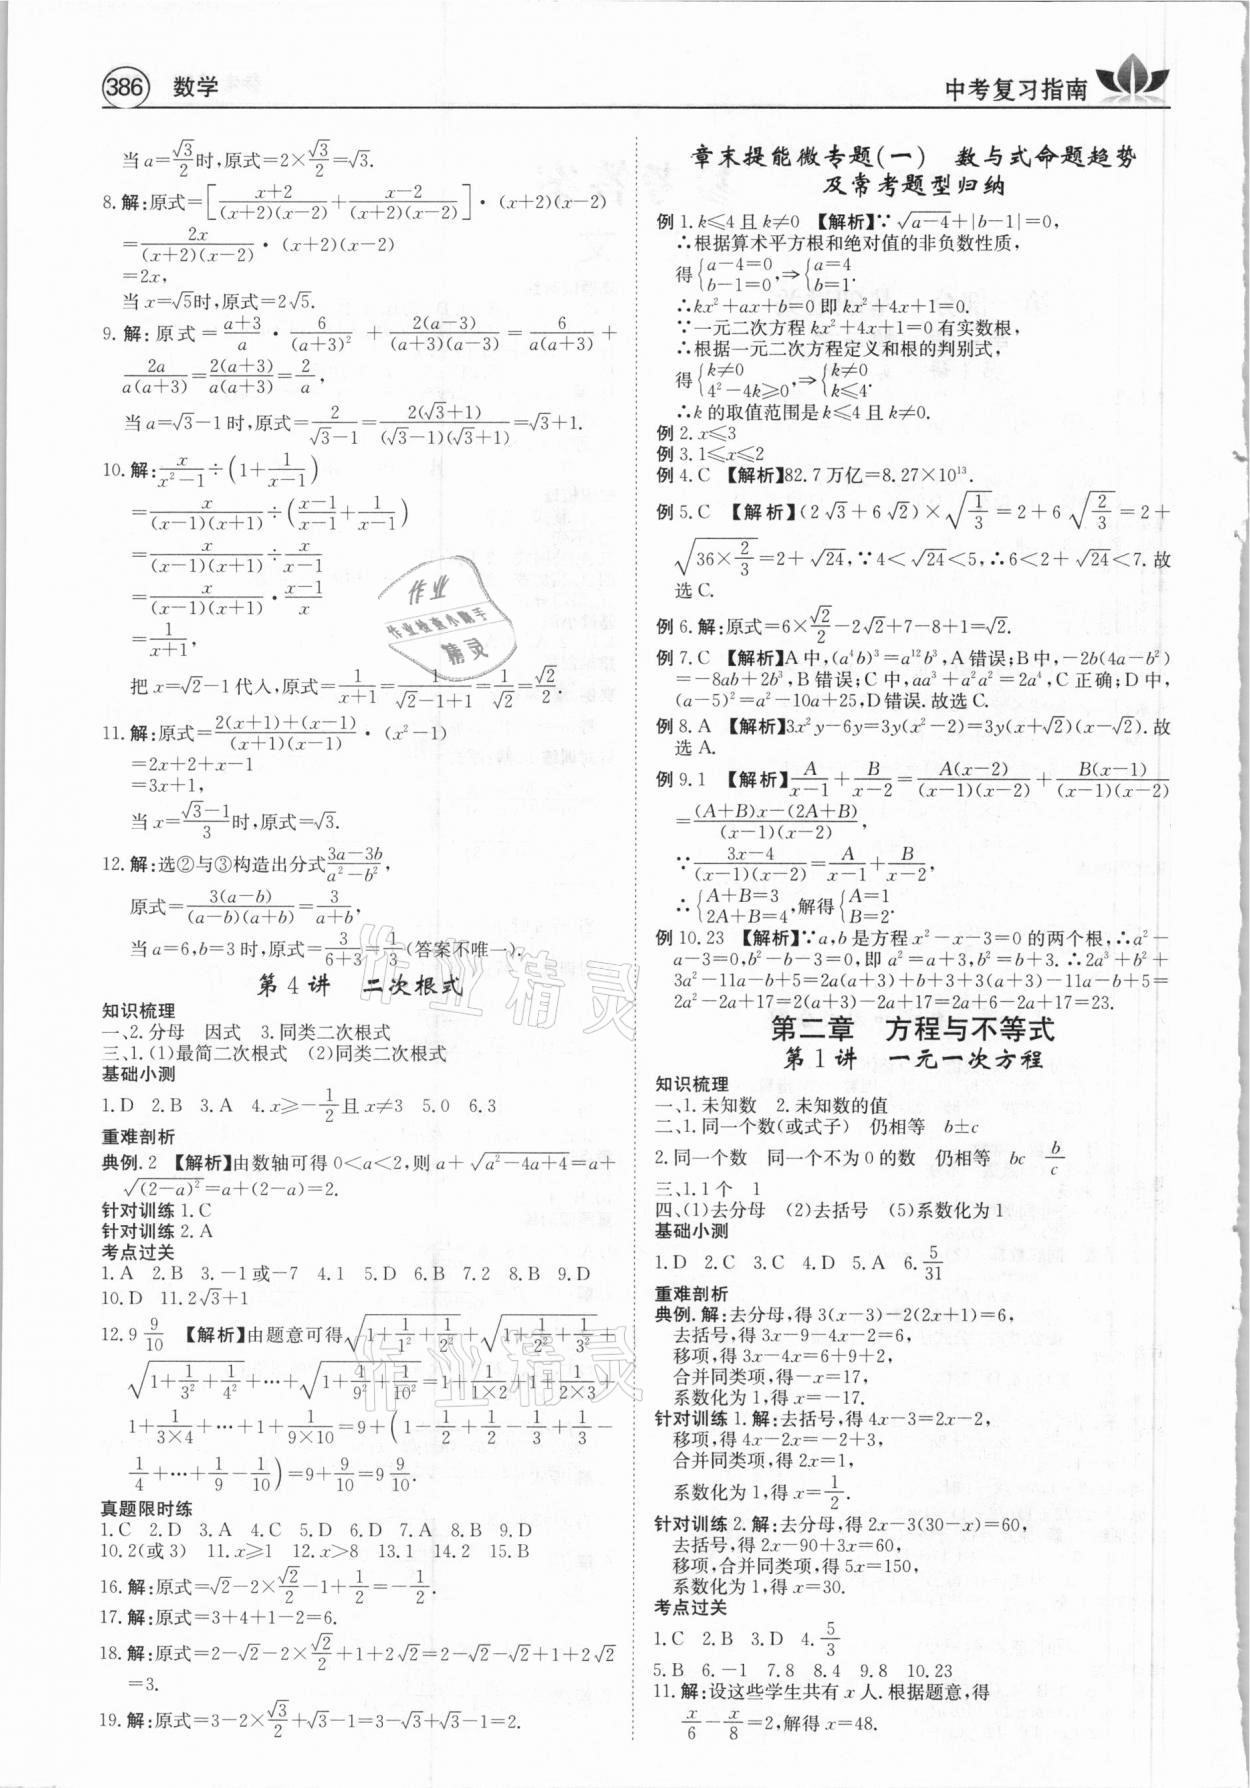 386 数学
中考复习指南
当a=√3/2时,原式=2×√3/2=√3.
8.解:原式=[(x+2)/((x+2)(x−2))+(x−2)/((x+2)(x−2))]·(x+2)(x−2)
=2x/((x+2)(x−2))·(x+2)(x−2)
=2x,
当x=√5时,原式=2√5.
9.解:原式=(a+3)/a·6/(a+3)²+2(a−3)/((a+3)(a−3))=6/(a(a+3))+
2a/(a(a+3))=2(a+3)/(a(a+3))=2/a,
当a=√3−1时,原式=2/(√3−1)=2(√3+1)/((√3−1)(√3+1))=√3+1.
10.解:x/(x²−1)÷(1+1/(x−1))
=x/((x−1)(x+1))÷((x−1)/(x−1)+1/(x−1))
=x/((x−1)(x+1))÷x/(x−1)
=x/((x−1)(x+1))·(x−1)/x
=1/(x+1),
把x=√2−1代人,原式=1/(x+1)=1/(√2−1+1)=1/√2=√2/2.
11.解:原式=(2(x+1)+(x−1))/((x+1)(x−1))·(x²−1)
=2x+2+x−1
=3x+1,
当x=(√3−1)/3时,原式=√3.
12.解:选②与③构造出分式(3a−3b)/(a²−b²),
原式=3(a−b)/((a−b)(a+b))=3/(a+b),
当a=6,b=3时,原式=3/(6+3)=1/3(答案不唯一).
第4讲 二次根式
知识梳理
一、2.分母 因式 3.同类二次根式
三、1.(1)最简二次根式 (2)同类二次根式
基础小测
1.D 2.B 3.A 4.x⩾−1/2且x≠3 5.0 6.3
重难剖析
典例.2 【解析】由数轴可得0<a<2,则a+√(a²−4a+4)=a+
√((2−a)²)=a+(2−a)=2.
针对训练1.C
针对训练2.A
考点过关
1.A 2.B 3.−1或−7 4.1 5.D 6.B 7.2 8.B 9.D
10.D 11.2√3+1
12.9 9/10 【解析】由题意可得√(1+1/1²+1/2²)+√(1+1/2²+1/3²)+
√(1+1/3²+1/4²)+···+√(1+1/9²+1/10²)=1+1/(1×2)+1+1/(2×3)+
1+1/(3×4)+···+1+1/(9×10)=9+(1−1/2+1/2−1/3+1/3−
1/4+···+1/9−1/10)=9+9/10=9 9/10.
真题限时练
1.C 2.D 3.A 4.C 5.D 6.D 7.A 8.B 9.D
10.2(或3) 11.x⩾1 12.x>8 13.1 14.2 15.B
16.解:原式=√2−2×√2/2−1+1/2=−1/2.
17.解:原式=3+4+1−2=6.
18.解:原式=2−√2−2×√2/2+1+2√2=2−√2−√2+1+2√2
=3.
19.解:原式=3−2×√3/2+√3−1=3−√3+√3−1=2.
章末提能微专题(一) 数与式命题趋势
及常考题型归纳
例1.k⩽4且k≠0 【解析】∵√(a−4)+|b−1|=0,
∴根据算术平方根和绝对值的非负数性质,
得{a−4=0, b−1=0,⇒{a=4, b=1.
∴kx²+ax+b=0即kx²+4x+1=0.
∵一元二次方程kx²+4x+1=0有实数根,
∴根据一元二次方程定义和根的判别式,
得{k≠0, 4²−4k⩾0,⇒{k≠0, k⩽4.
∴k的取值范围是k⩽4且k≠0.
例2.x⩽3
例3.1⩽x⩽2
例4.C 【解析】82.7万亿=8.27×10¹³.
例5.C 【解析】(2√3+6√2)×√(1/3)=2+6√(2/3)=2+
√(36×2/3)=2+√24,∵4<√24<5,∴6<2+√24<7.故
选C.
例6.解:原式=6×√2/2−2√2+7−8+1=√2.
例7.C 【解析】A中,(a⁴b)³=a¹²b³,A错误;B中,−2b(4a−b²)
=−8ab+2b³,B错误;C中,aa³+a²a²=2a⁴,C正确;D中,
(a−5)²=a²−10a+25,D错误.故选C.
例8.A 【解析】3x²y−6y=3y(x²−2)=3y(x+√2)(x−√2).故
选A.
例9.1 【解析】A/(x−1)+B/(x−2)=A(x−2)/((x−1)(x−2))+B(x−1)/((x−1)(x−2))
=((A+B)x−(2A+B))/((x−1)(x−2)),
∵(3x−4)/((x−1)(x−2))=A/(x−1)+B/(x−2),
∴{A+B=3, 2A+B=4,解得{A=1, B=2.
例10.23 【解析】∵a,b是方程x²−x−3=0的两个根,∴a²−
a−3=0,b²−b−3=0,即a²=a+3,b²=b+3.∴2a³+b²+
3a²−11a−b+5=2a(a+3)+b+3+3(a+3)−11a−b+5=
2a²−2a+17=2(a+3)−2a+17=2a+6−2a+17=23.
第二章 方程与不等式
第1讲 一元一次方程
知识梳理
一、1.未知数 2.未知数的值
二、1.同一个数(或式子) 仍相等 b±c
2.同一个数 同一个不为0的数 仍相等 bc b/c
三、1.1个 1
四、(1)去分母 (2)去括号 (5)系数化为1
基础小测
1.D 2.C 3.C 4.D 5.A 6.5/31
重难剖析
典例.解:去分母,得3(x−3)−2(2x+1)=6,
去括号,得3x−9−4x−2=6,
移项,得3x−4x=6+9+2,
合并同类项,得−x=17,
系数化为1,得x=−17.
针对训练1.解:去括号,得4x−3=2x−2,
移项,得4x−2x=−2+3,
合并同类项,得2x=1,
系数化为1,得x=1/2.
针对训练2.解:去分母,得2x−3(30−x)=60,
去括号,得2x−90+3x=60,
移项,合并同类项,得5x=150,
系数化为1,得x=30.
考点过关
1.C 2.B 3.D 4.5/3
5.B 6.−1 7.8 8.4 9.8 10.23
11.解:设这些学生共有x人.根据题意,得
x/6−x/8=2,解得x=48.
作业
作业检查小助手
精灵
作业精灵
作业精灵